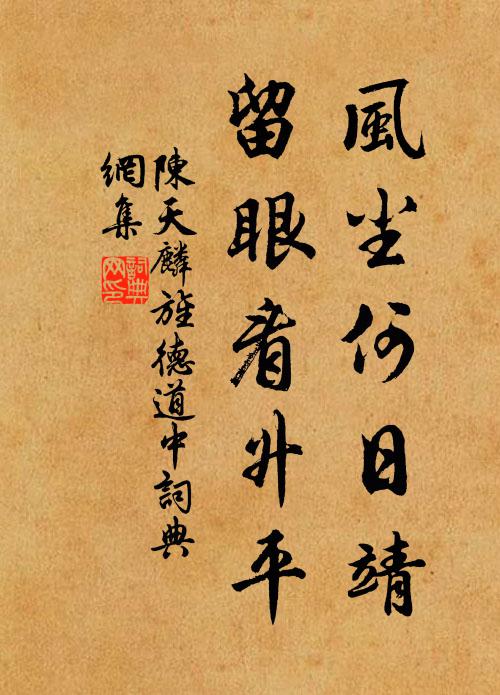 風尘何日靖
留眼看升平
陳天麟旌德道中詞典
網集
詞典
网印